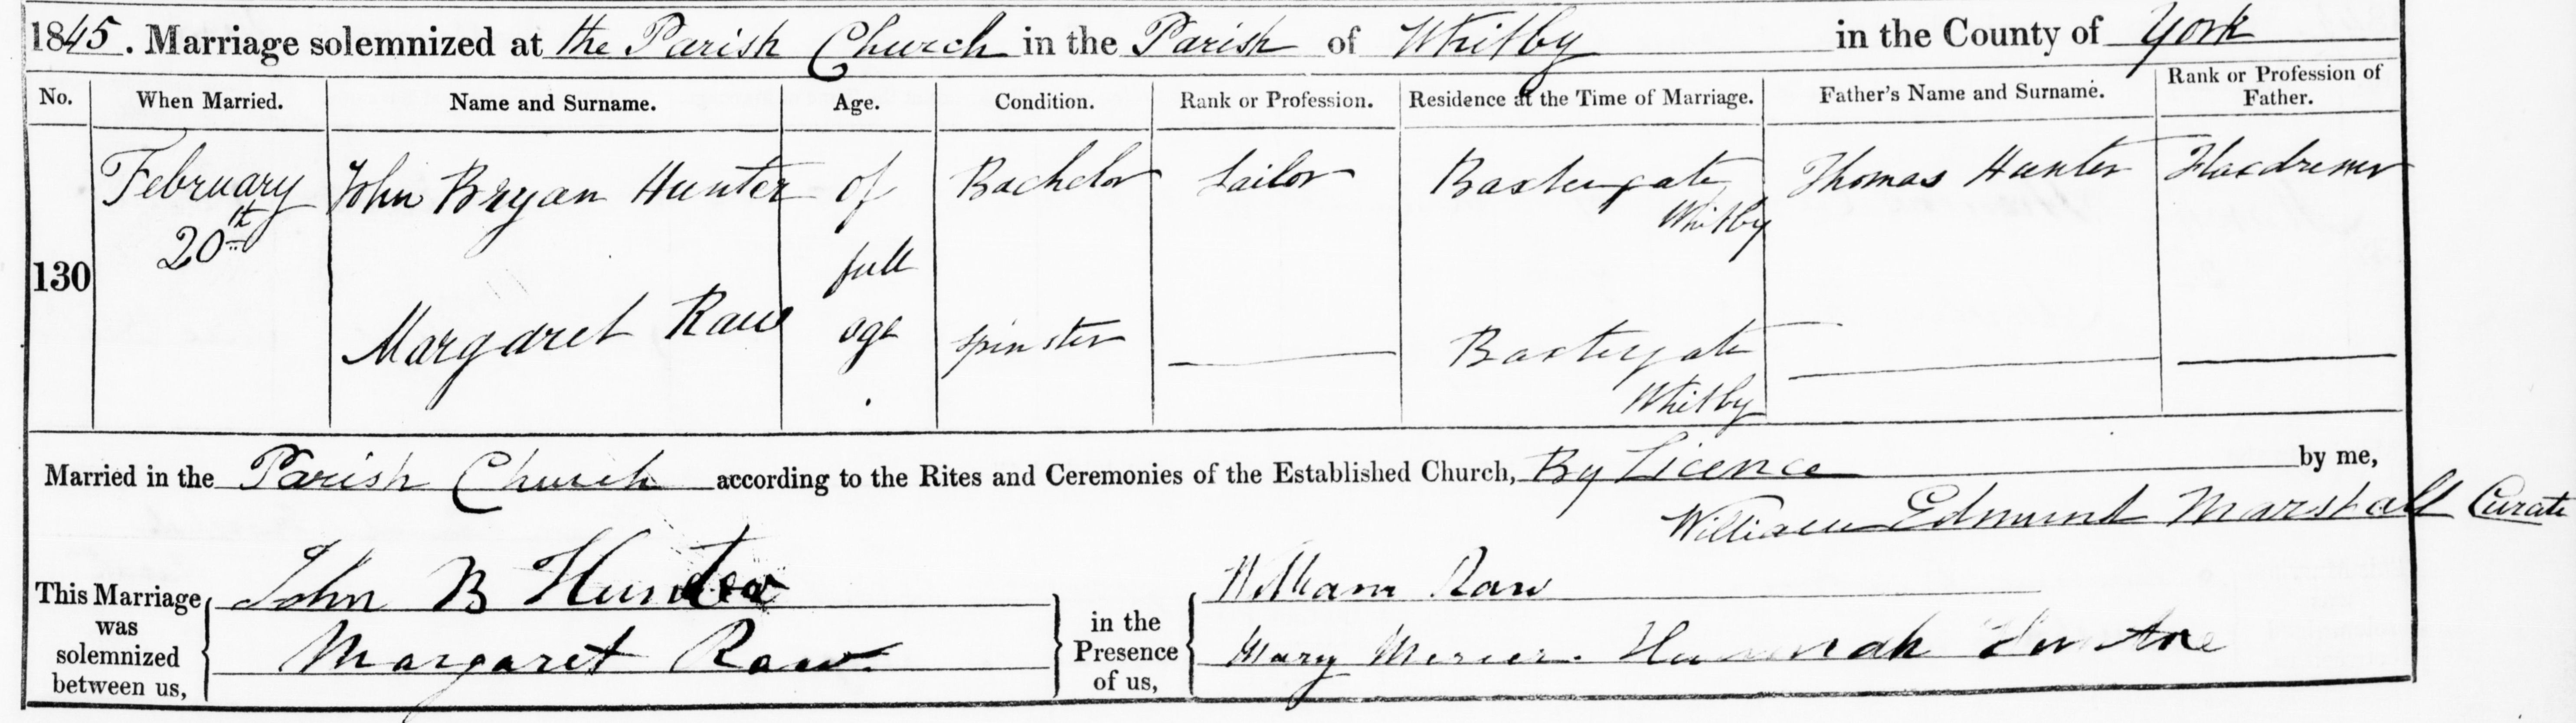 1845. Marriage solemnized at the Parish Church in the Parish of Whitby in the County of York
No. When Married. Name and Surname. Age. Condition. Rank or Profession. Residence at the Time of Marriage. Father's Name and Surname. Rank or Profession of Father.
130 February 20th John Bryan Hunter of full age Bachelor Sailor Baxtergate Whitby Thomas Hunter Flaxdresser
Margaret Raw Spinster Baxtergate Whitby
Married in the Parish Church according to the Rites and Ceremonies of the Established Church, By Licence by me,
William Edmund Marshall Curate
This Marriage was solemnized between us,
John B Hunter
Margaret Raw
in the Presence of us,
William Raw
Mary Mercer. Hannah